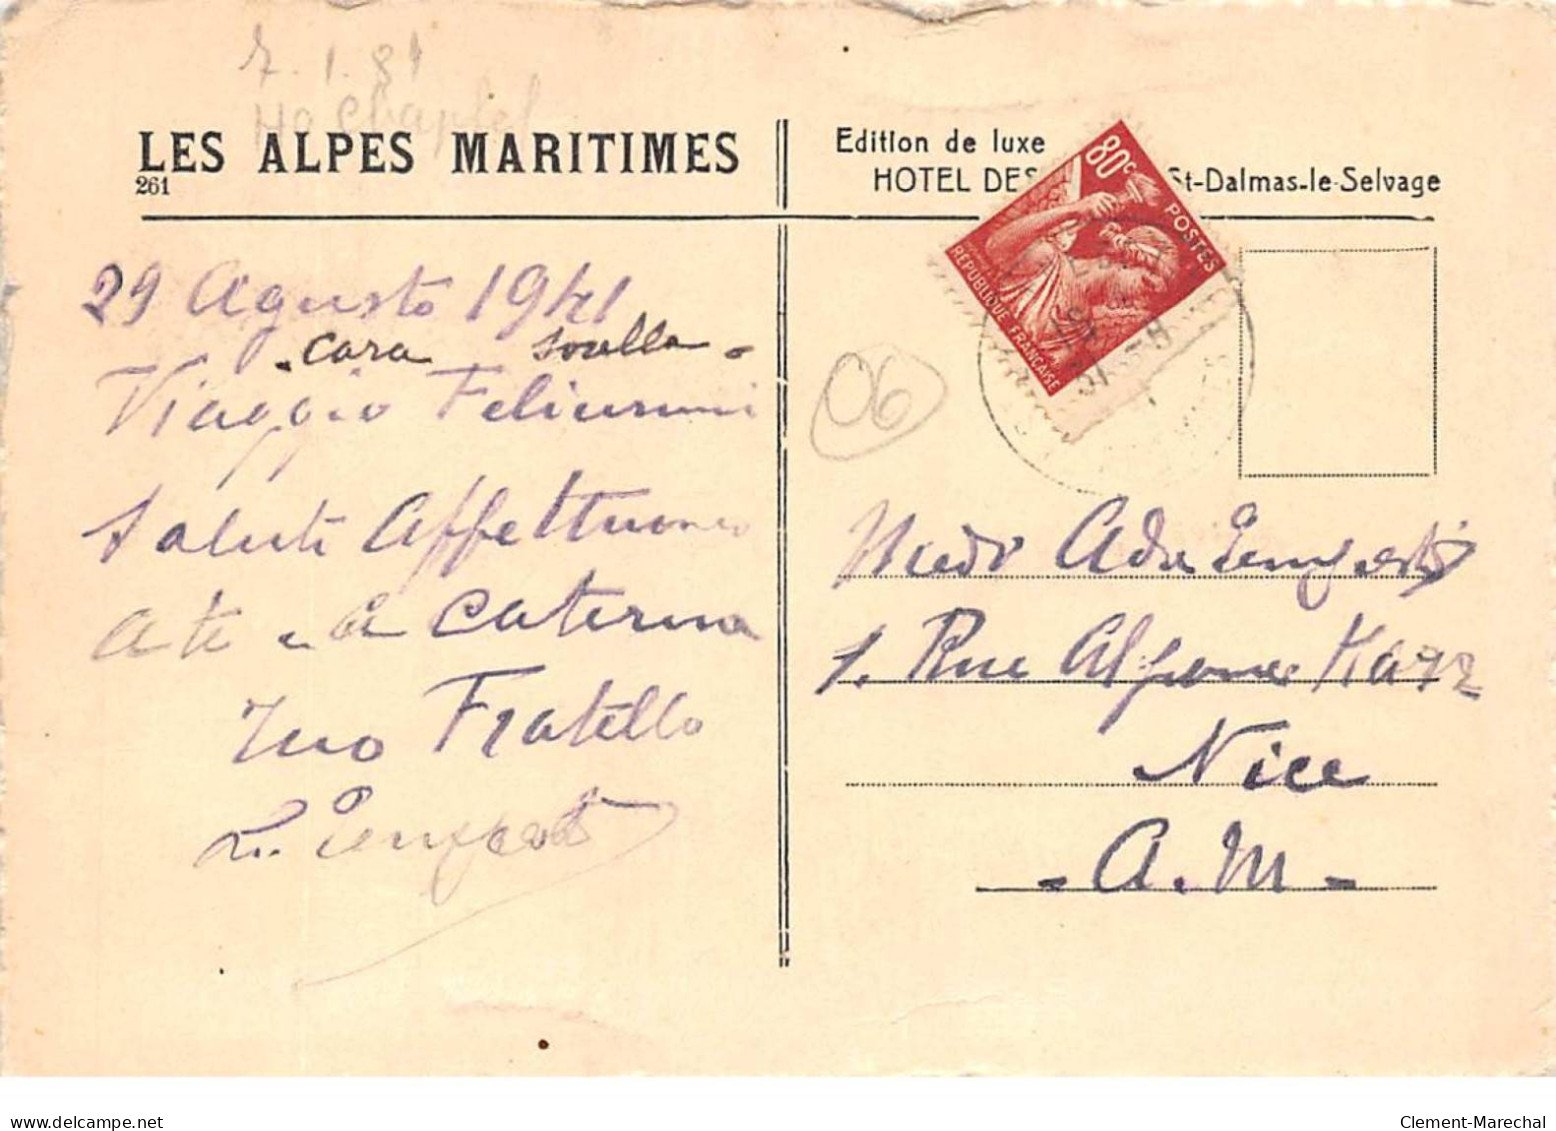 7.1.81
LES ALPES MARITIMES
261
Edition de luxe
HOTEL DES St-Dalmas-le-Selvage
80c
POSTES
REPUBLIQUE FRANÇAISE
29 Agusto 1941
cara sorella
Viaggio
Saluti Affettuosi
a te e a Caterina
Tuo Fratello
06
Ada
1. Rue Alphonse Karr
Nice
A.M
delcampe.net
Clement-Marechal